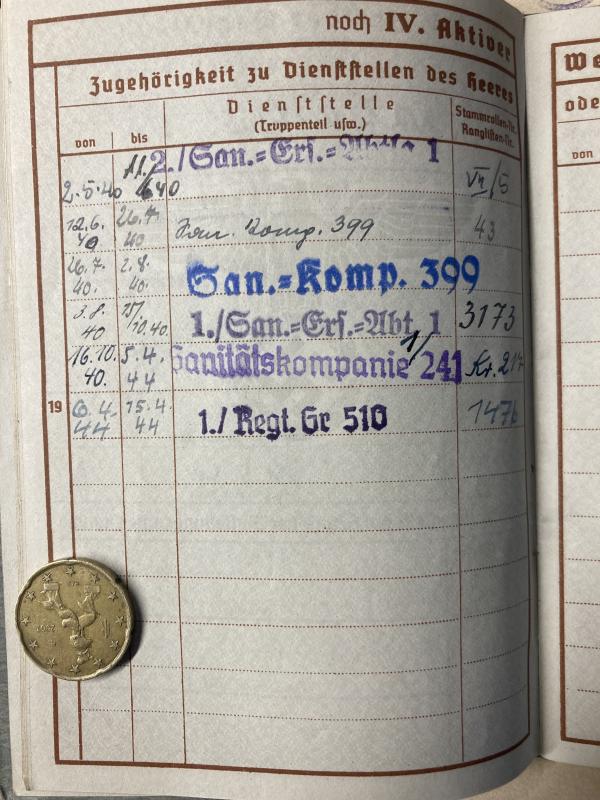 noch IV. Aktiver
Zugehörigkeit zu Dienststellen des Heeres
von bis Dienststelle (Truppenteil usw.) Stammrollen-Nr. Ranglisten-Nr.
2.5.40 11./6 40 2./San.=Ers.=Abtlg 1 VII/5
12.6. 40 26.7. 40 San. Komp. 399 43
26.7. 40. 2.8. 40. San.=Komp. 399
3.8. 40 15/ 10.40. 1./San.=Ers.=Abt. 1 3173
16.10. 40. 5.4. 44 Sanitätskompanie 1/ 241 Kr. 217
19 6.4. 44 15.4. 44 1./ Regt. Gr 510 1476
We
ode
von
2002